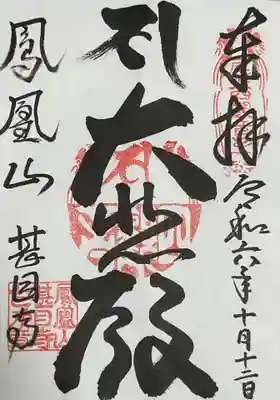 奉拝 令和六年十月十二日
大悲殿
鳳凰山 甚目寺